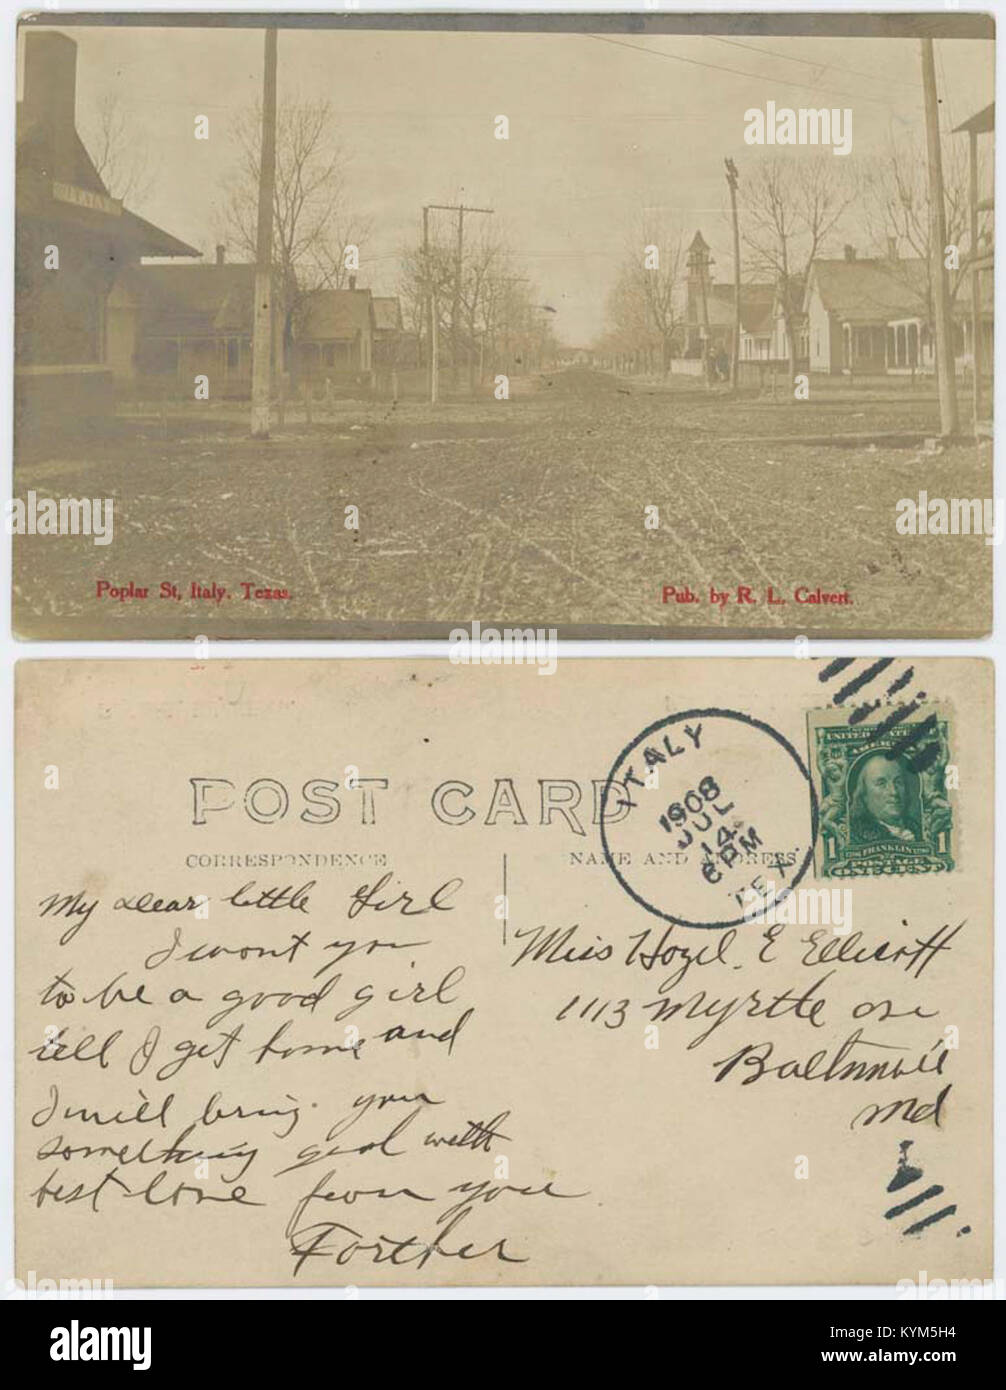 ITALY
Poplar St, Italy. Texas.
Pub. by R. L. Calvert.
POST CARD
CORRESPONDENCE
NAME AND ADDRESS
ITALY
1908
JUL
14
6 PM
TEX.
UNITED STATES
AMERICA
1 FRANKLIN 1
POSTAGE
ONE CENT
My dear little Girl
I wont you
to be a good girl
till I get home and
I will bring you
something good with
best love from your
Forther
Miss Hazel. E Ellicott
1113 Myrtle ave
Baltimore
Md
alamy
Image ID: KYM5H4
www.alamy.com